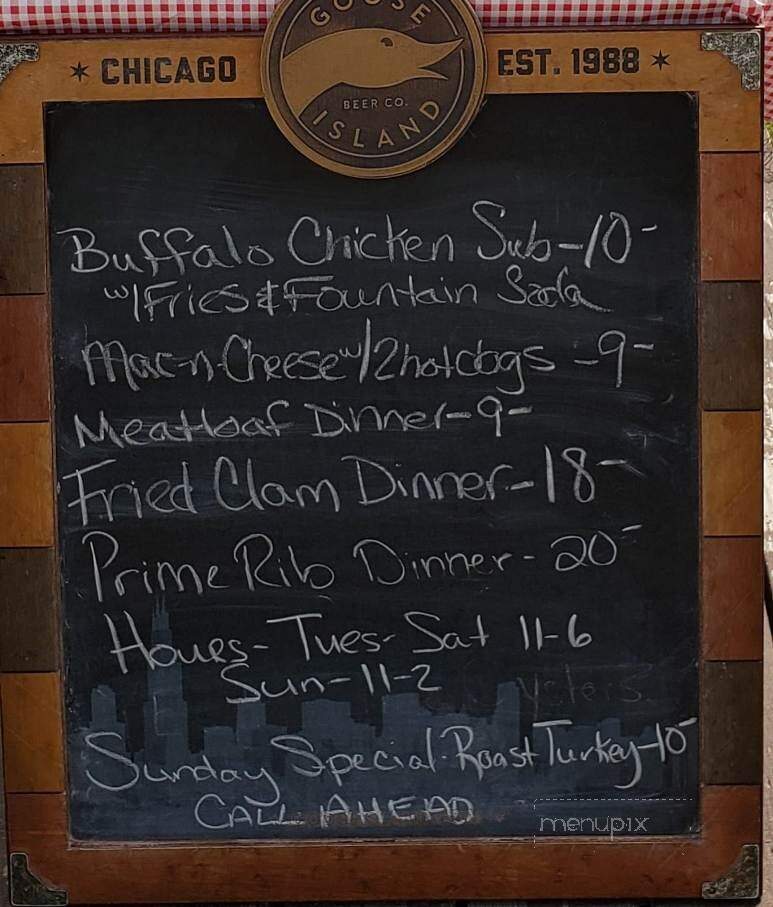 GOOSE
CHICAGO
EST. 1988
BEER CO.
ISLAND
Buffalo Chicken Sub-10-
w/Fries & Fountain Soda
Mac-n-Cheese w/2 hot dogs -9-
Meatloaf Dinner-9-
Fried Clam Dinner-18-
Prime Rib Dinner-20-
Hours-Tues-Sat 11-6
Sun-11-2
Sunday Special-Roast Turkey-10-
CALL AHEAD
menupix